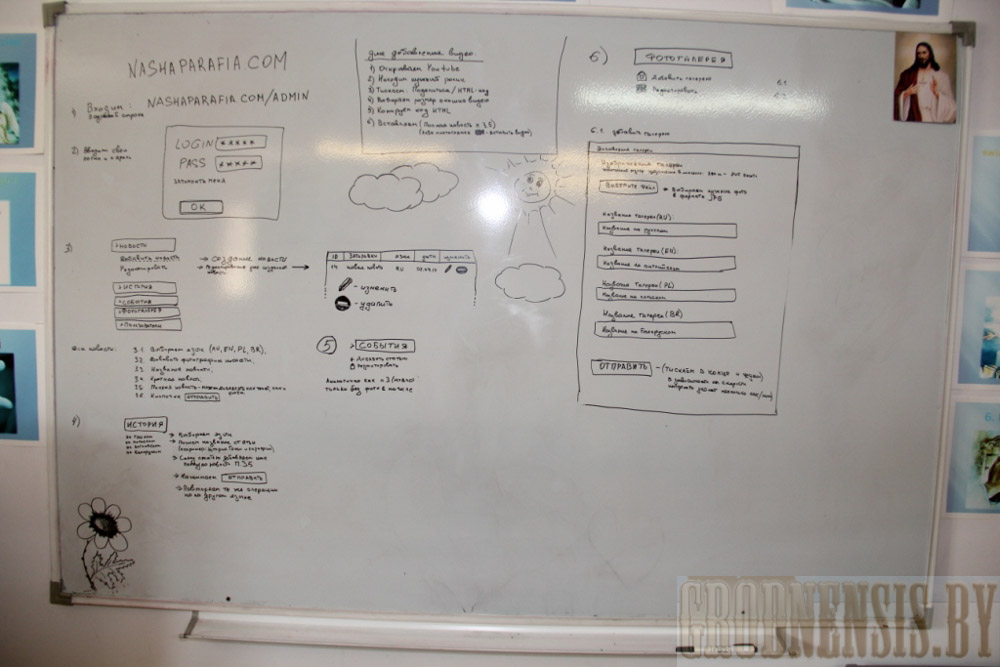 NASHAPARAFIA.COM
1) Входим:
NASHAPARAFIA.COM/ADMIN
2) Вводим свои
логин и пароль
LOGIN *****
PASS *****
ЗАПОМНИТЬ МЕНЯ
OK
Для добавления видео
1) Открываем Youtube
2) Находим нужный ролик
3) Тискаем: Поделиться / HTML-код
4) Выбираем размер окошка видео
5) Копируем код HTML
6) Вставляем (Полная новость п 3.5)
3)
> НОВОСТИ
Добавить новость → СОЗДАНИЕ НОВОСТИ
Редактировать → Редактирование уже
> ИСТОРИЯ
> СОБЫТИЯ
> ФОТОГАЛЕРЕЯ
> Пользователи
ID ЗАГОЛОВОК ЯЗЫК ДАТА ИЗМЕНИТЬ
RU
- ИЗМЕНИТЬ
- УДАЛИТЬ
3.1. Выбираем язык (RU, EN, PL, BR);
3.2. Добавить фотографию
3.3. Название новости;
3.4. Краткая новость;
3.5. Полная новость
3.6. Кнопочка ОТПРАВИТЬ
4)
ИСТОРИЯ
→ Выбираем язык
→ Пишем название статьи
→ Саму статью добавляем как
П. 3.5
→ Нажимаем ОТПРАВИТЬ
→ Повторяем те же операции
но на другом языке
5
> СОБЫТИЯ
Добавить статью
Редактировать
Аналогично как п 3 (новости)
только без фото в начале
6)
ФОТОГАЛЕРЕЯ
Добавить галерею 6.1
Редактировать 6.2
6.1. Добавить галерею
Добавление галереи
Изображения галереи
ВЫБЕРИТЕ ФАЙЛ
Выбираем нужные фото
в формате JPG
Название галереи (RU):
Название на русском
Название галереи (EN):
Название на английском
Название галереи (PL)
Название на польском
Название галереи (BR)
Название на белорусском
ОТПРАВИТЬ - (ТИСКАЕМ В КОНЦЕ И ЖДЕМ)
В зависимости от скорости
6.
GRODNENSIS.BY